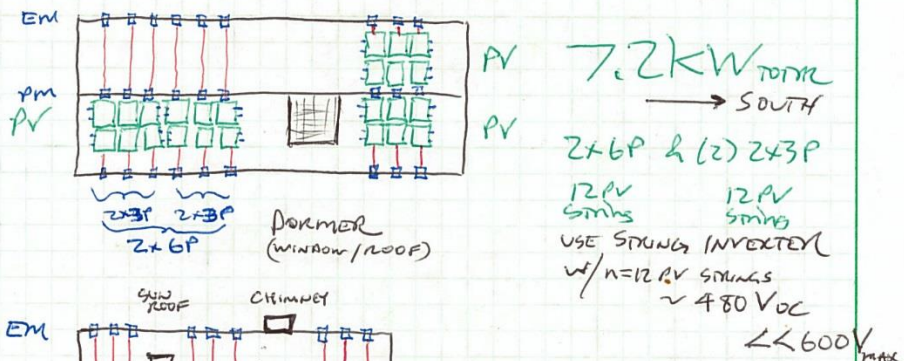 EM
PM
PV
PV
PV
2x3P 2x3P
2x6P
DORMER
(WINDOW/ROOF)
7.2KW TOTAL
→ SOUTH
2x6P & (2) 2x3P
12 PV 12 PV
STRING STRING
USE STRING INVERTER
W/n=12 PV STRINGS
~ 480 VOC
<<600V MAX
SUN
ROOF
CHIMNEY
EM